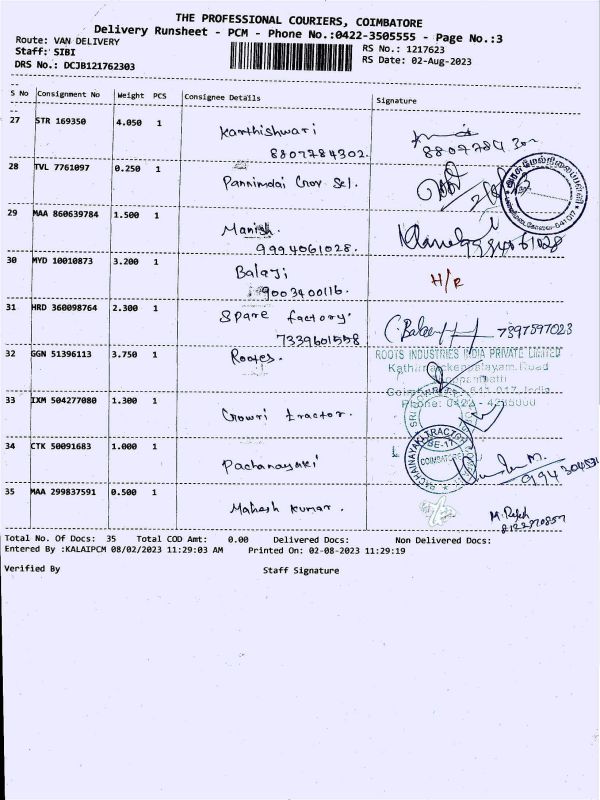 THE PROFESSIONAL COURIERS, COIMBATORE
Delivery Runsheet - PCM - Phone No.:0422-3505555 - Page No.:3
Route: VAN DELIVERY
RS No.: 1217623
Staff: SIBI
RS Date: 02-Aug-2023
DRS No.: DCJB121762303
S No Consignment No Weight PCS Consignee Details Signature
27 STR 169350 4.050 1
Karthishwari
8807784302.
28 TVL 7761097 0.250 1
Pannimdai Gov Scl.
29 MAA 860639784 1.500 1
Manish
9994061028.
30 MYD 10010873 3.200 1
Balaji H/R
9003400116.
31 HRD 360098764 2.300 1
Spare factory.
7339601558 7397597023
32 GGN 51396113 3.750 1
Rootes.
ROOTS INDUSTRIES INDIA PRIVATE LIMITED
33 IXM 504277080 1.300 1
Gowri tractor.
34 CTK 50091683 1.000 1
COIMBATORE
Pachanayaki
35 MAA 299837591 0.500 1
Mahesh kumar.
Total No. Of Docs: 35 Total COD Amt: 0.00 Delivered Docs: Non Delivered Docs:
Entered By :KALAIPCM 08/02/2023 11:29:03 AM Printed On: 02-08-2023 11:29:19
Verified By Staff Signature